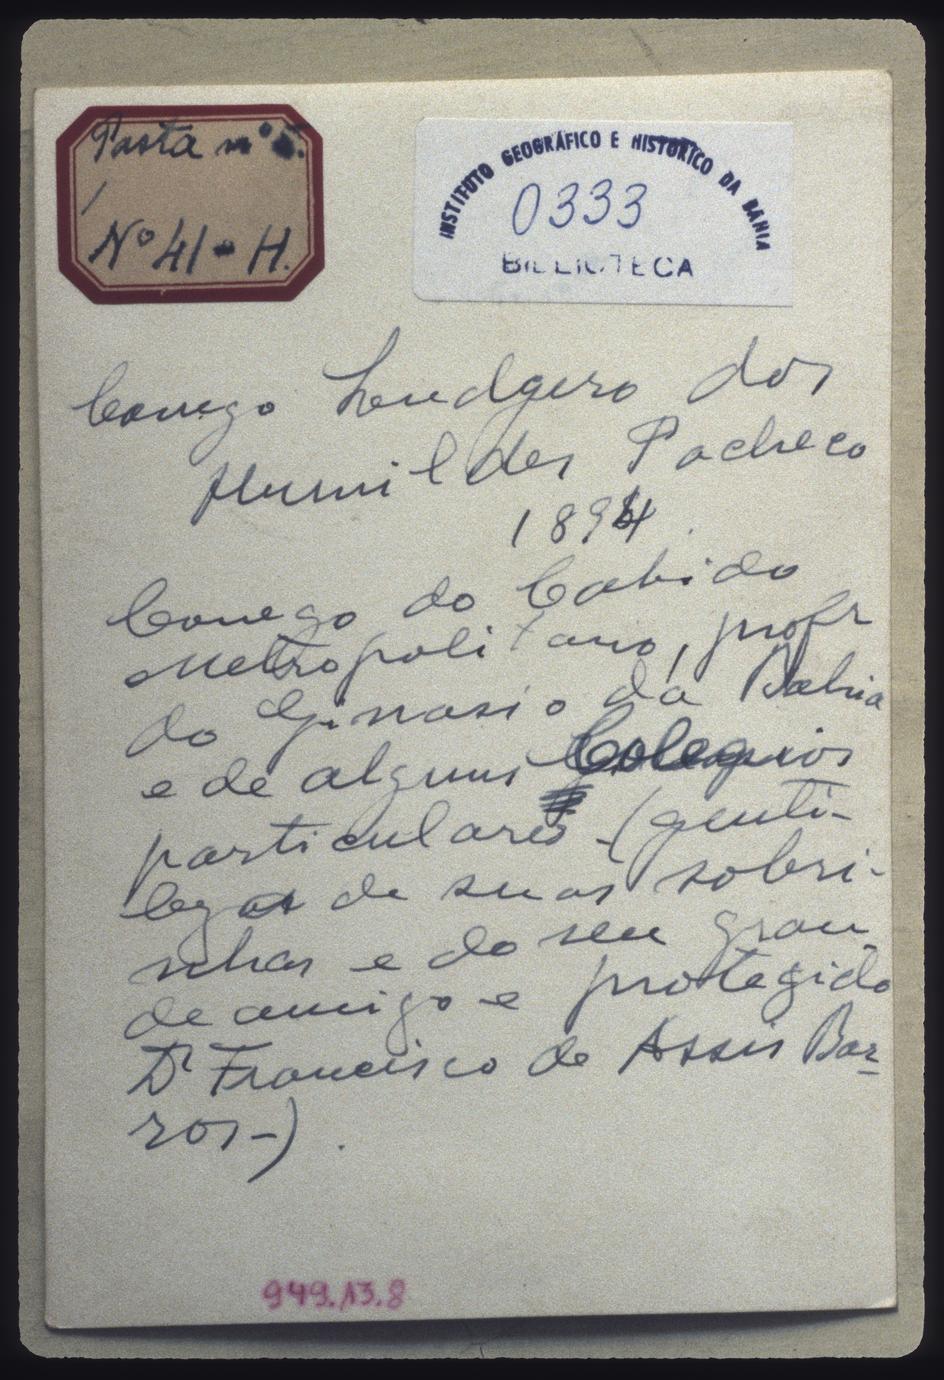 Pasta nº 5.
Nº 41 - H.
INSTITUTO GEOGRÁFICO E HISTÓRICO DA BAHIA
0333
BIBLIOTECA
Conego Leudgero dos
Humildes Pacheco
1894.
Conego do Cabido
Metropolitano, profr
do Ginasio da Bahia
e de alguns Colegios
particulares - (genti-
lezas de suas sobri-
nhas e do seu gran
de amigo e protegido
Dr Francisco de Assis Bar-
ros-).
949.13.8